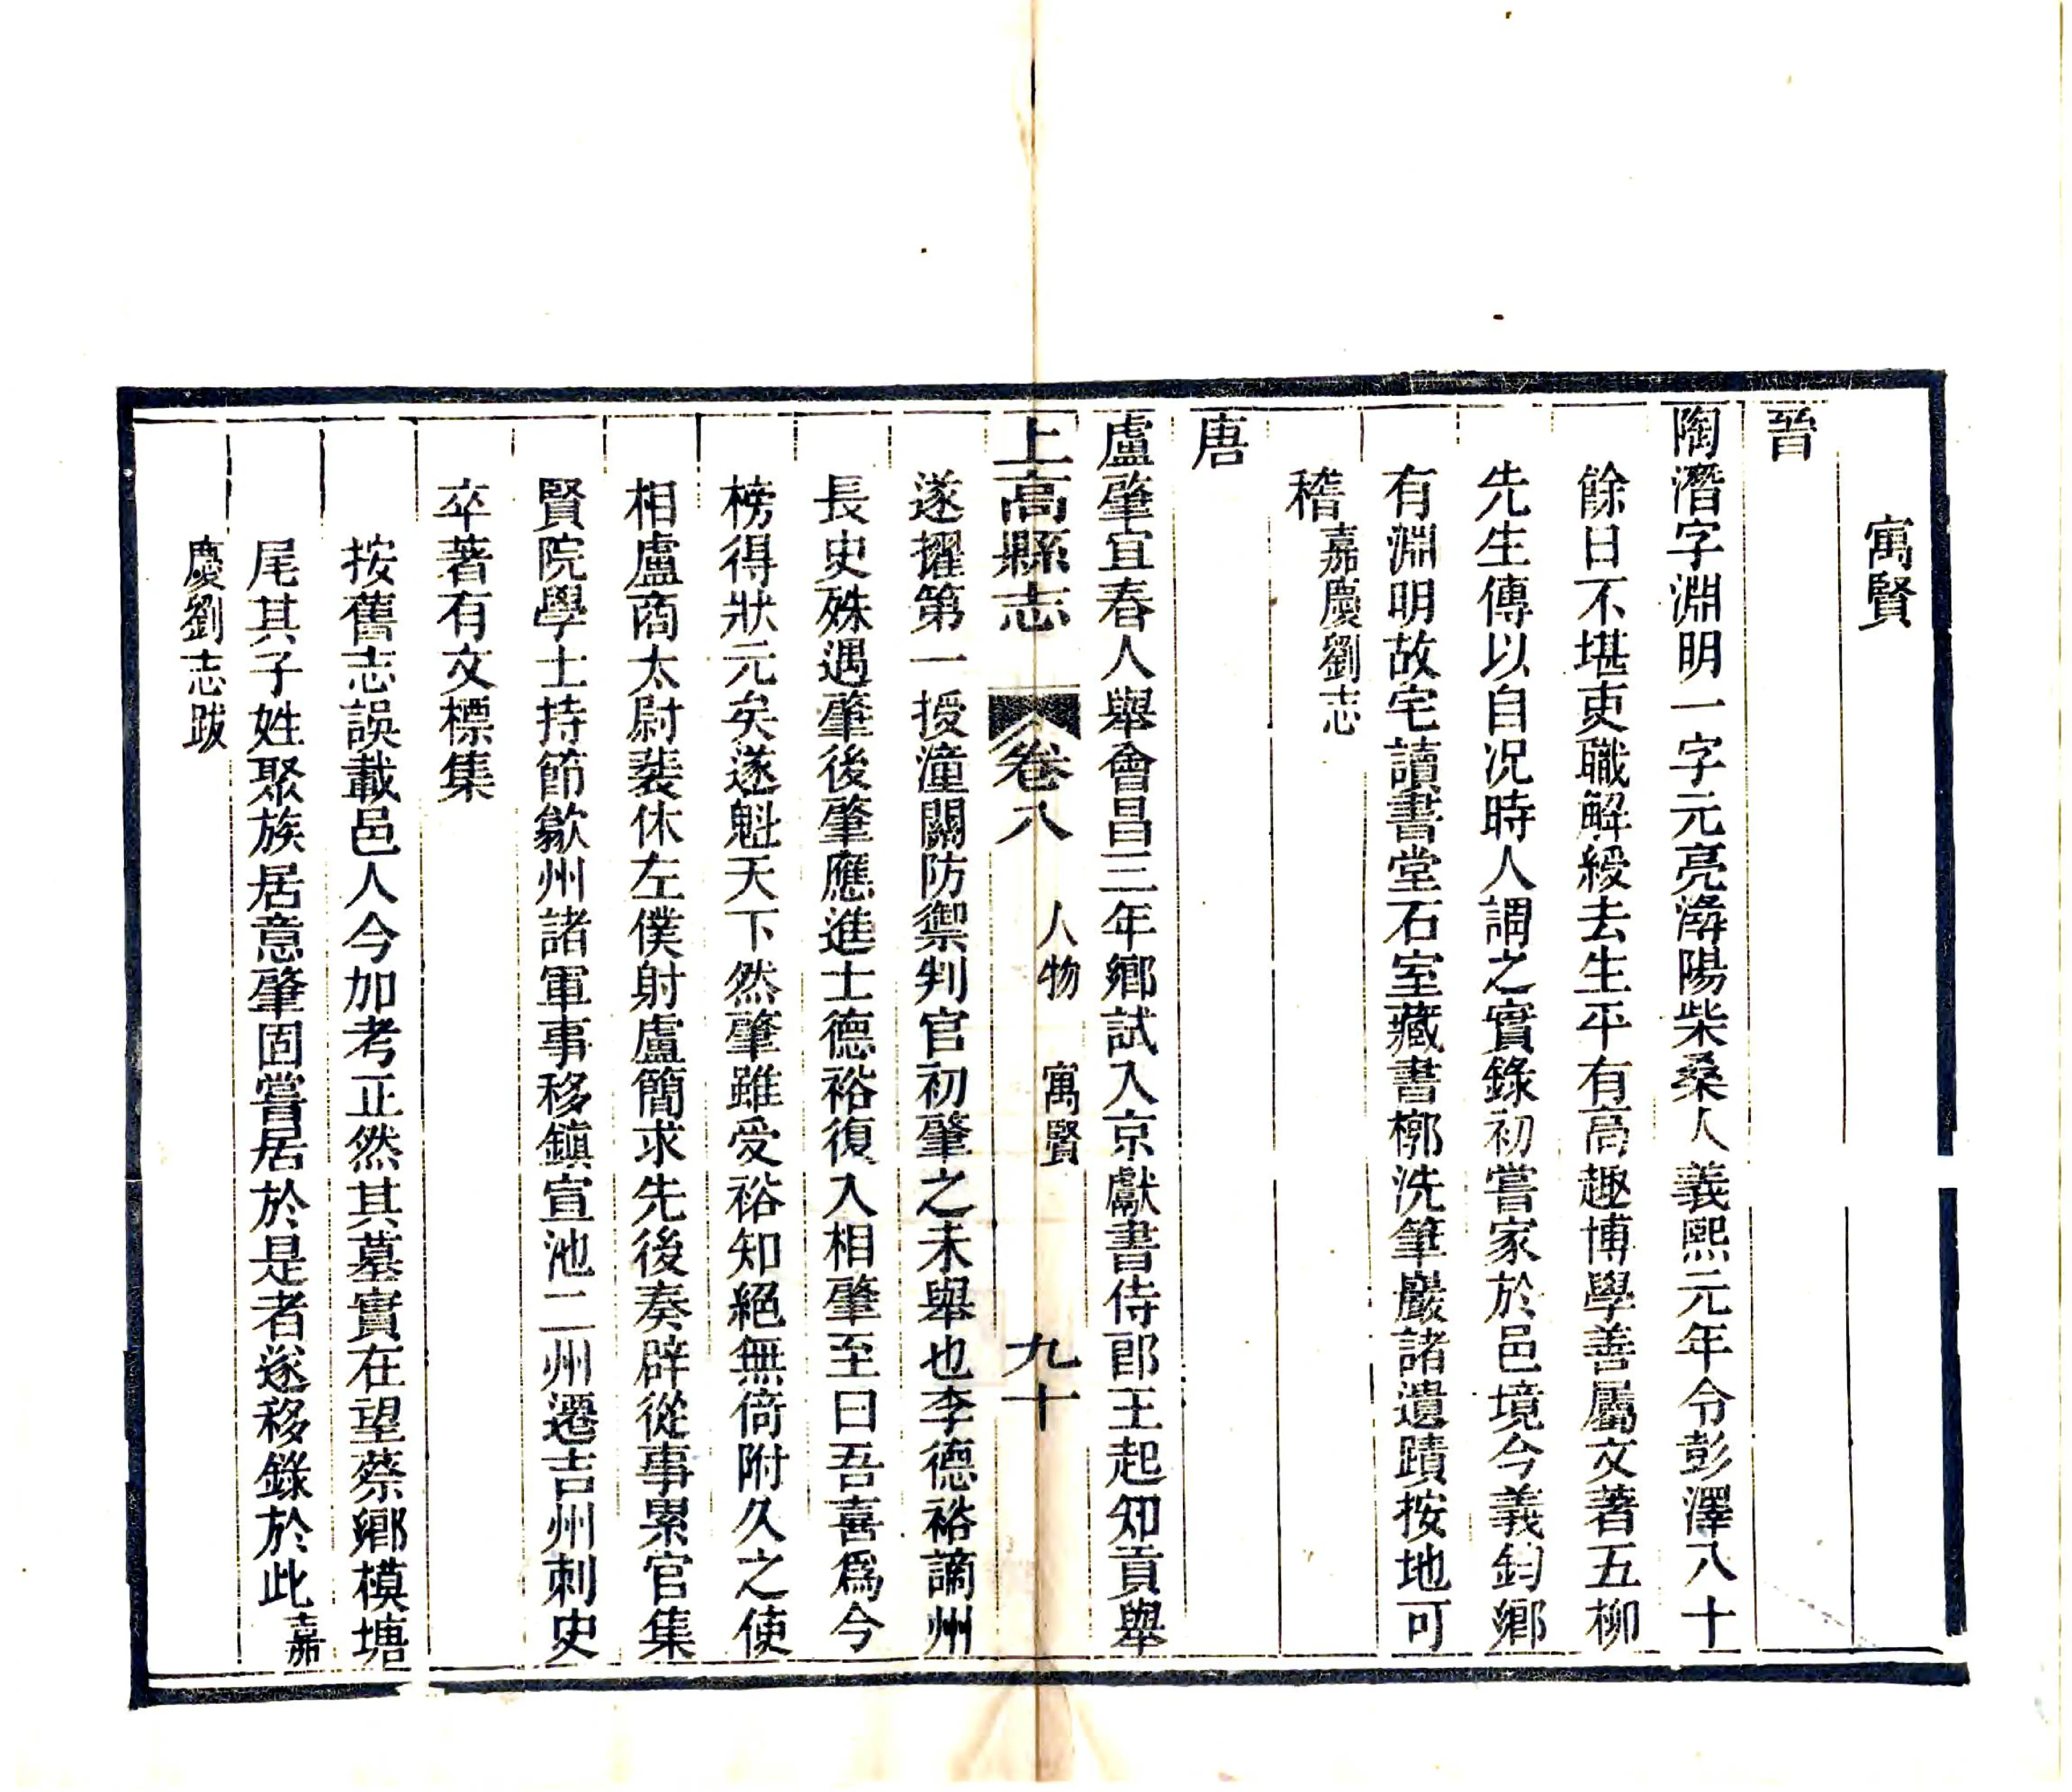 寓賢
晉
陶潛字淵明一字元亮潯陽柴桑人義熙元年令彭澤八十
餘日不堪吏職解綬去生平有高趣博學善屬文著五柳
先生傳以自况時人謂之實錄初嘗家於邑境今義鈞鄉
有淵明故宅讀書堂石室藏書槨洗筆巖諸遺蹟按地可
稽嘉慶劉志
唐
盧肇宜春人舉會昌三年鄉試入京獻書侍郎王起知貢舉
上高縣志 卷八 人物 寓賢 九十
遂擢第一授潼關防禦判官初肇之未舉也李德裕謫州
長史殊遇肇後肇應進士德裕復入相肇至曰吾喜爲今
榜得狀元矣遂魁天下然肇雖受裕知絕無倚附久之使
相盧商太尉裴休左僕射盧簡求先後奏辟從事累官集
賢院學士持節歙州諸軍事移鎮宣池二州遷吉州刺史
卒著有文標集
按舊志誤載邑人今加考正然其墓實在望蔡鄉模塘
尾其子姓聚族居意肇固嘗居於是者遂移錄於此嘉
慶劉志跋